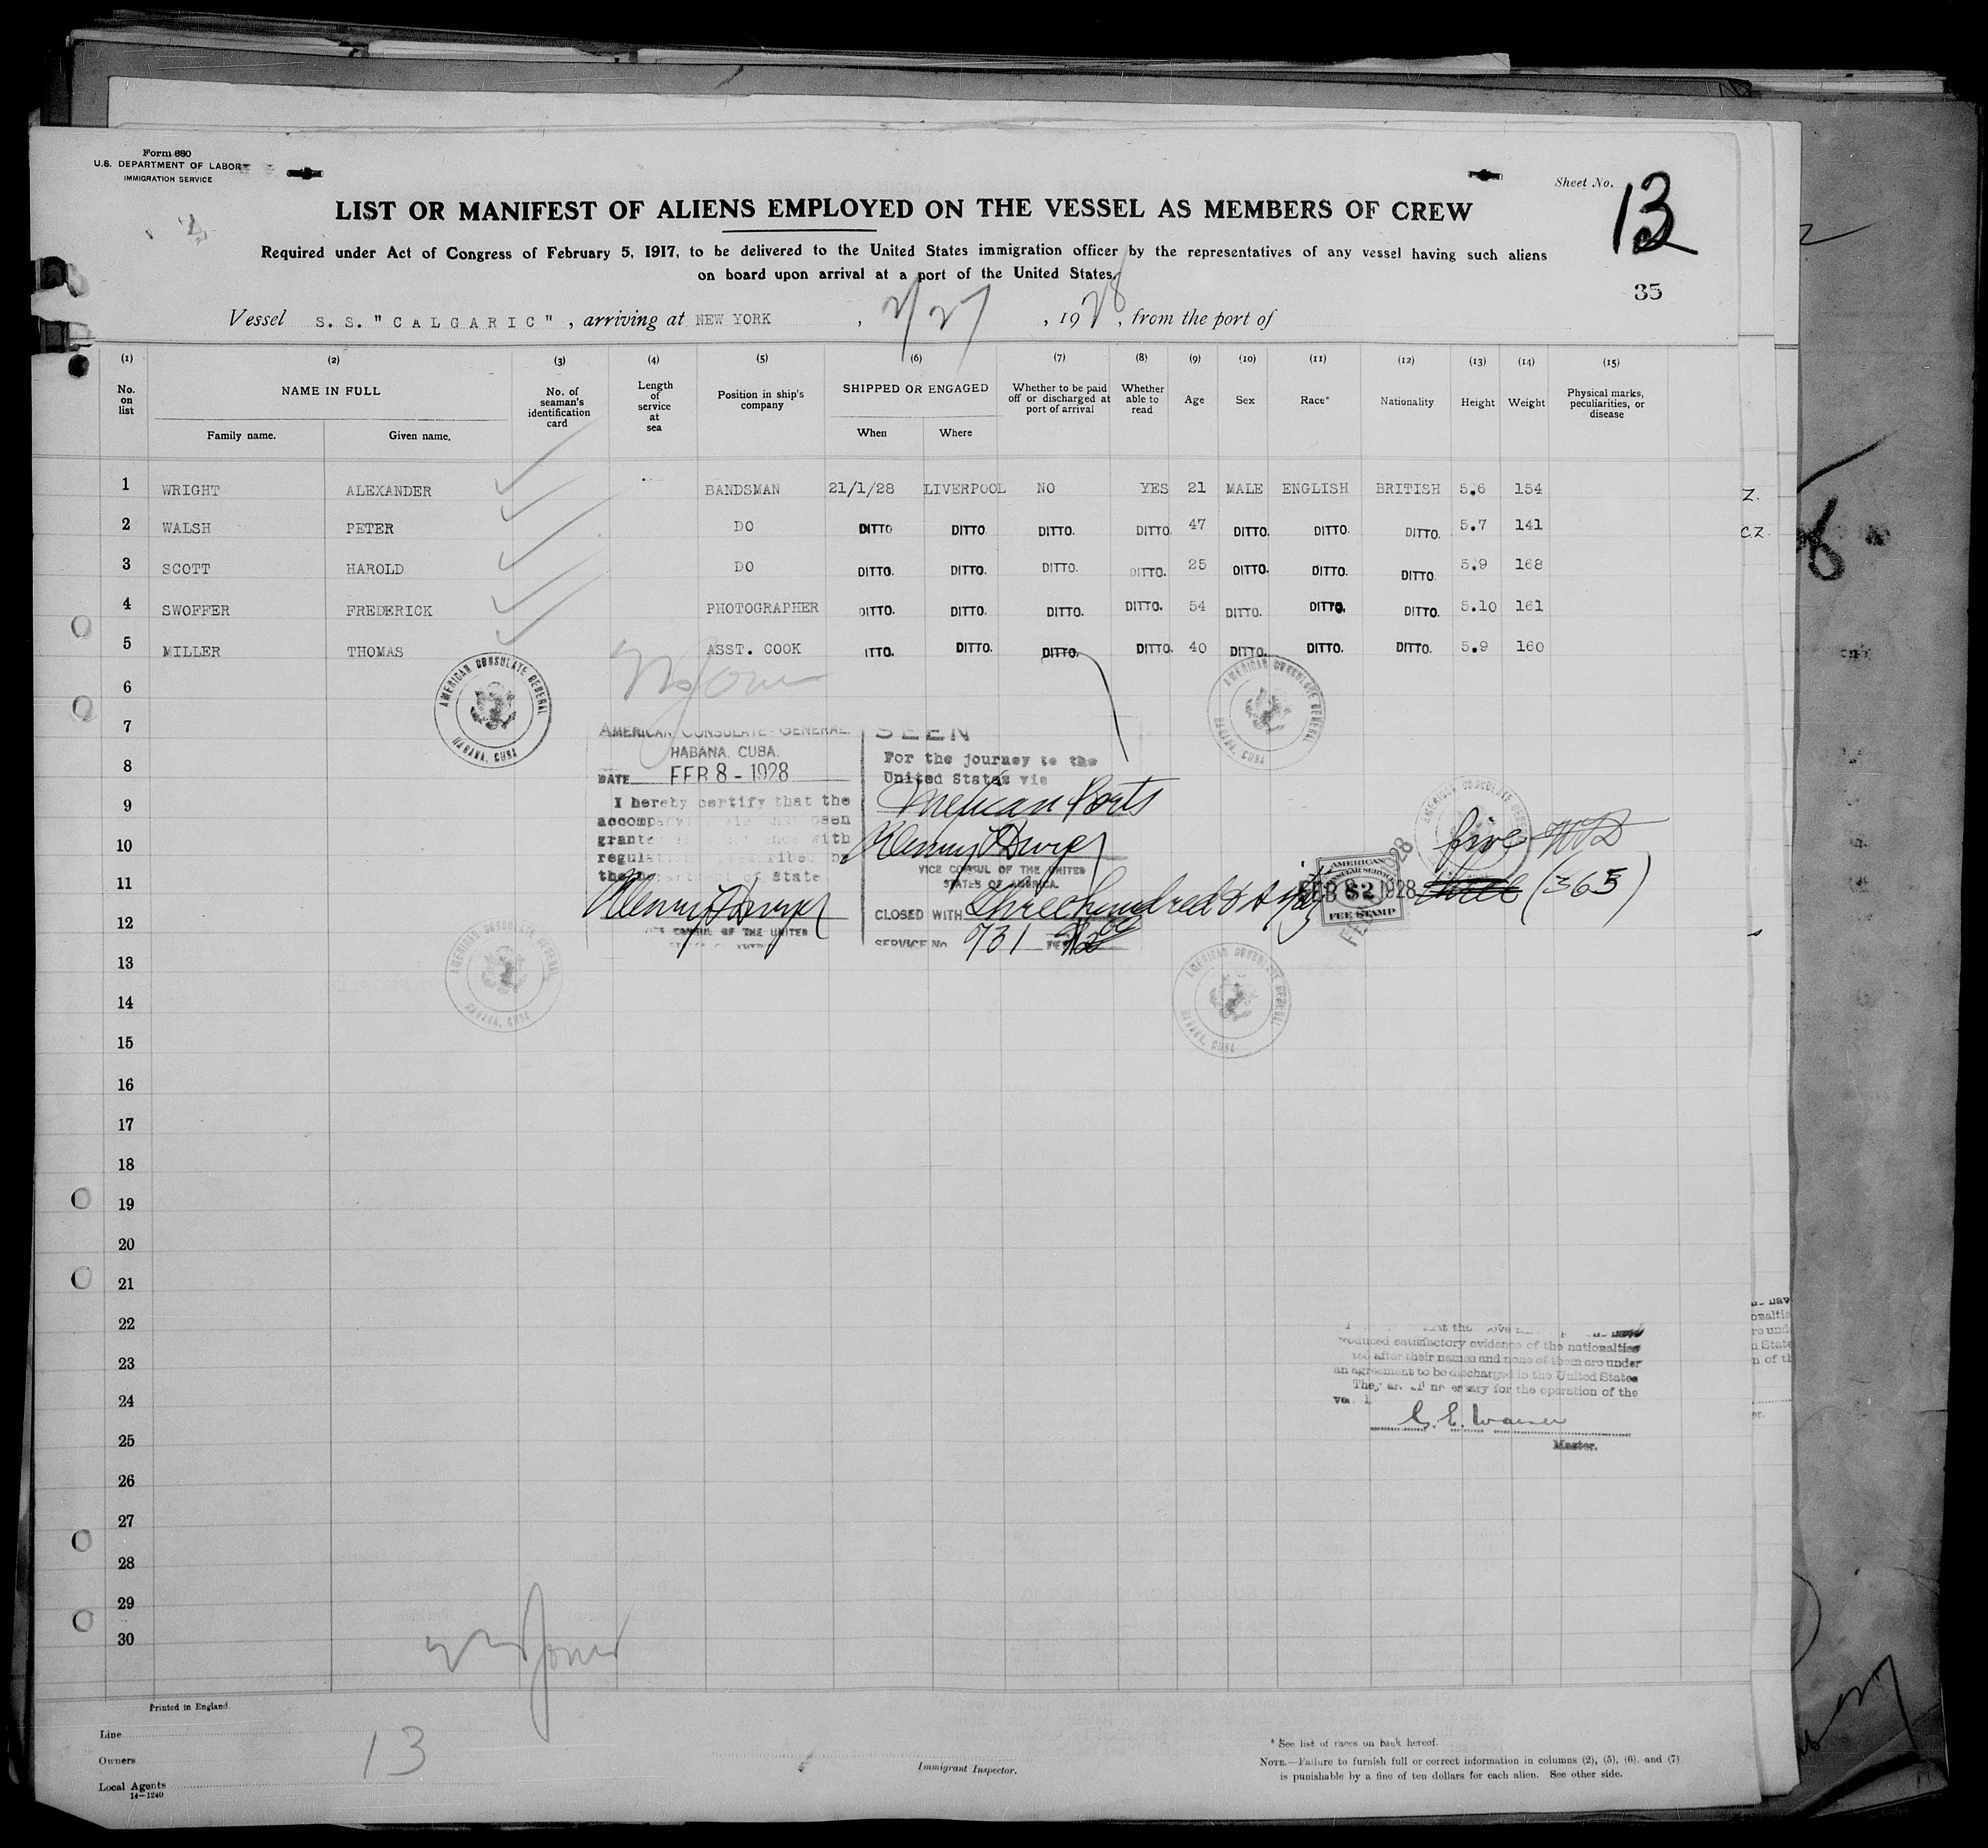 Form 680
U.S. DEPARTMENT OF LABOR
IMMIGRATION SERVICE
Sheet No. 13
LIST OR MANIFEST OF ALIENS EMPLOYED ON THE VESSEL AS MEMBERS OF CREW
Required under Act of Congress of February 5, 1917, to be delivered to the United States immigration officer by the representatives of any vessel having such aliens
on board upon arrival at a port of the United States.
35
Vessel S. S. "CALGARIC", arriving at NEW YORK, 2/27, 1928, from the port of
(1) (2) (3) (4) (5) (6) (7) (8) (9) (10) (11) (12) (13) (14) (15)
No. on list NAME IN FULL No. of seaman's identification card Length of service at sea Position in ship's company SHIPPED OR ENGAGED Whether to be paid off or discharged at port of arrival Whether able to read Age Sex Race* Nationality Height Weight Physical marks, peculiarities, or disease
Family name. Given name. When Where
1 WRIGHT ALEXANDER BANDSMAN 21/1/28 LIVERPOOL NO YES 21 MALE ENGLISH BRITISH 5.6 154
Z.
2 WALSH PETER DO DITTO DITTO. DITTO. DITTO 47 DITTO. DITTO. DITTO. 5.7 141
C.Z.
3 SCOTT HAROLD DO DITTO. DITTO. DITTO. DITTO. 25 DITTO. DITTO. DITTO. 5.9 168
4 SWOFFER FREDERICK PHOTOGRAPHER DITTO. DITTO. DITTO. DITTO. 54 DITTO. DITTO. DITTO. 5.10 161
5 MILLER THOMAS ASST. COOK ITTO. DITTO. DITTO. DITTO. 40 DITTO. DITTO. DITTO. 5.9 160
6
AMERICAN CONSULATE GENERAL
HABANA, CUBA
AMERICAN CONSULATE GENERAL
HABANA, CUBA
7
AMERICAN CONSULATE-GENERAL.
HABANA. CUBA.
DATE FEB 8 - 1928
I hereby certify that the
SEEN
For the journey to the
United States via
Mexican Ports
VICE CONSUL OF THE UNITED
STATES OF AMERICA.
CLOSED WITH Three hundred & sixty
five
(365)
SERVICE No. 931
VICE CONSUL OF THE UNITED
AMERICAN
CONSULAR SERVICE
$2
FEE STAMP
FEB 8 1928
8
9
10
11
12
13
AMERICAN CONSULATE GENERAL
HABANA, CUBA
AMERICAN CONSULATE GENERAL
HABANA, CUBA
14
15
16
17
18
19
20
21
22
23
24
25
26
27
28
29
30
produced satisfactory evidence of the nationalities
after their names and none of them are under
an agreement to be discharged in the United States
They are all necessary for the operation of the
Master.
Printed in England.
Line
Owners
Local Agents
14—1240
13
Immigrant Inspector.
* See list of races on back hereof.
NOTE.—Failure to furnish full or correct information in columns (2), (5), (6), and (7)
is punishable by a fine of ten dollars for each alien. See other side.